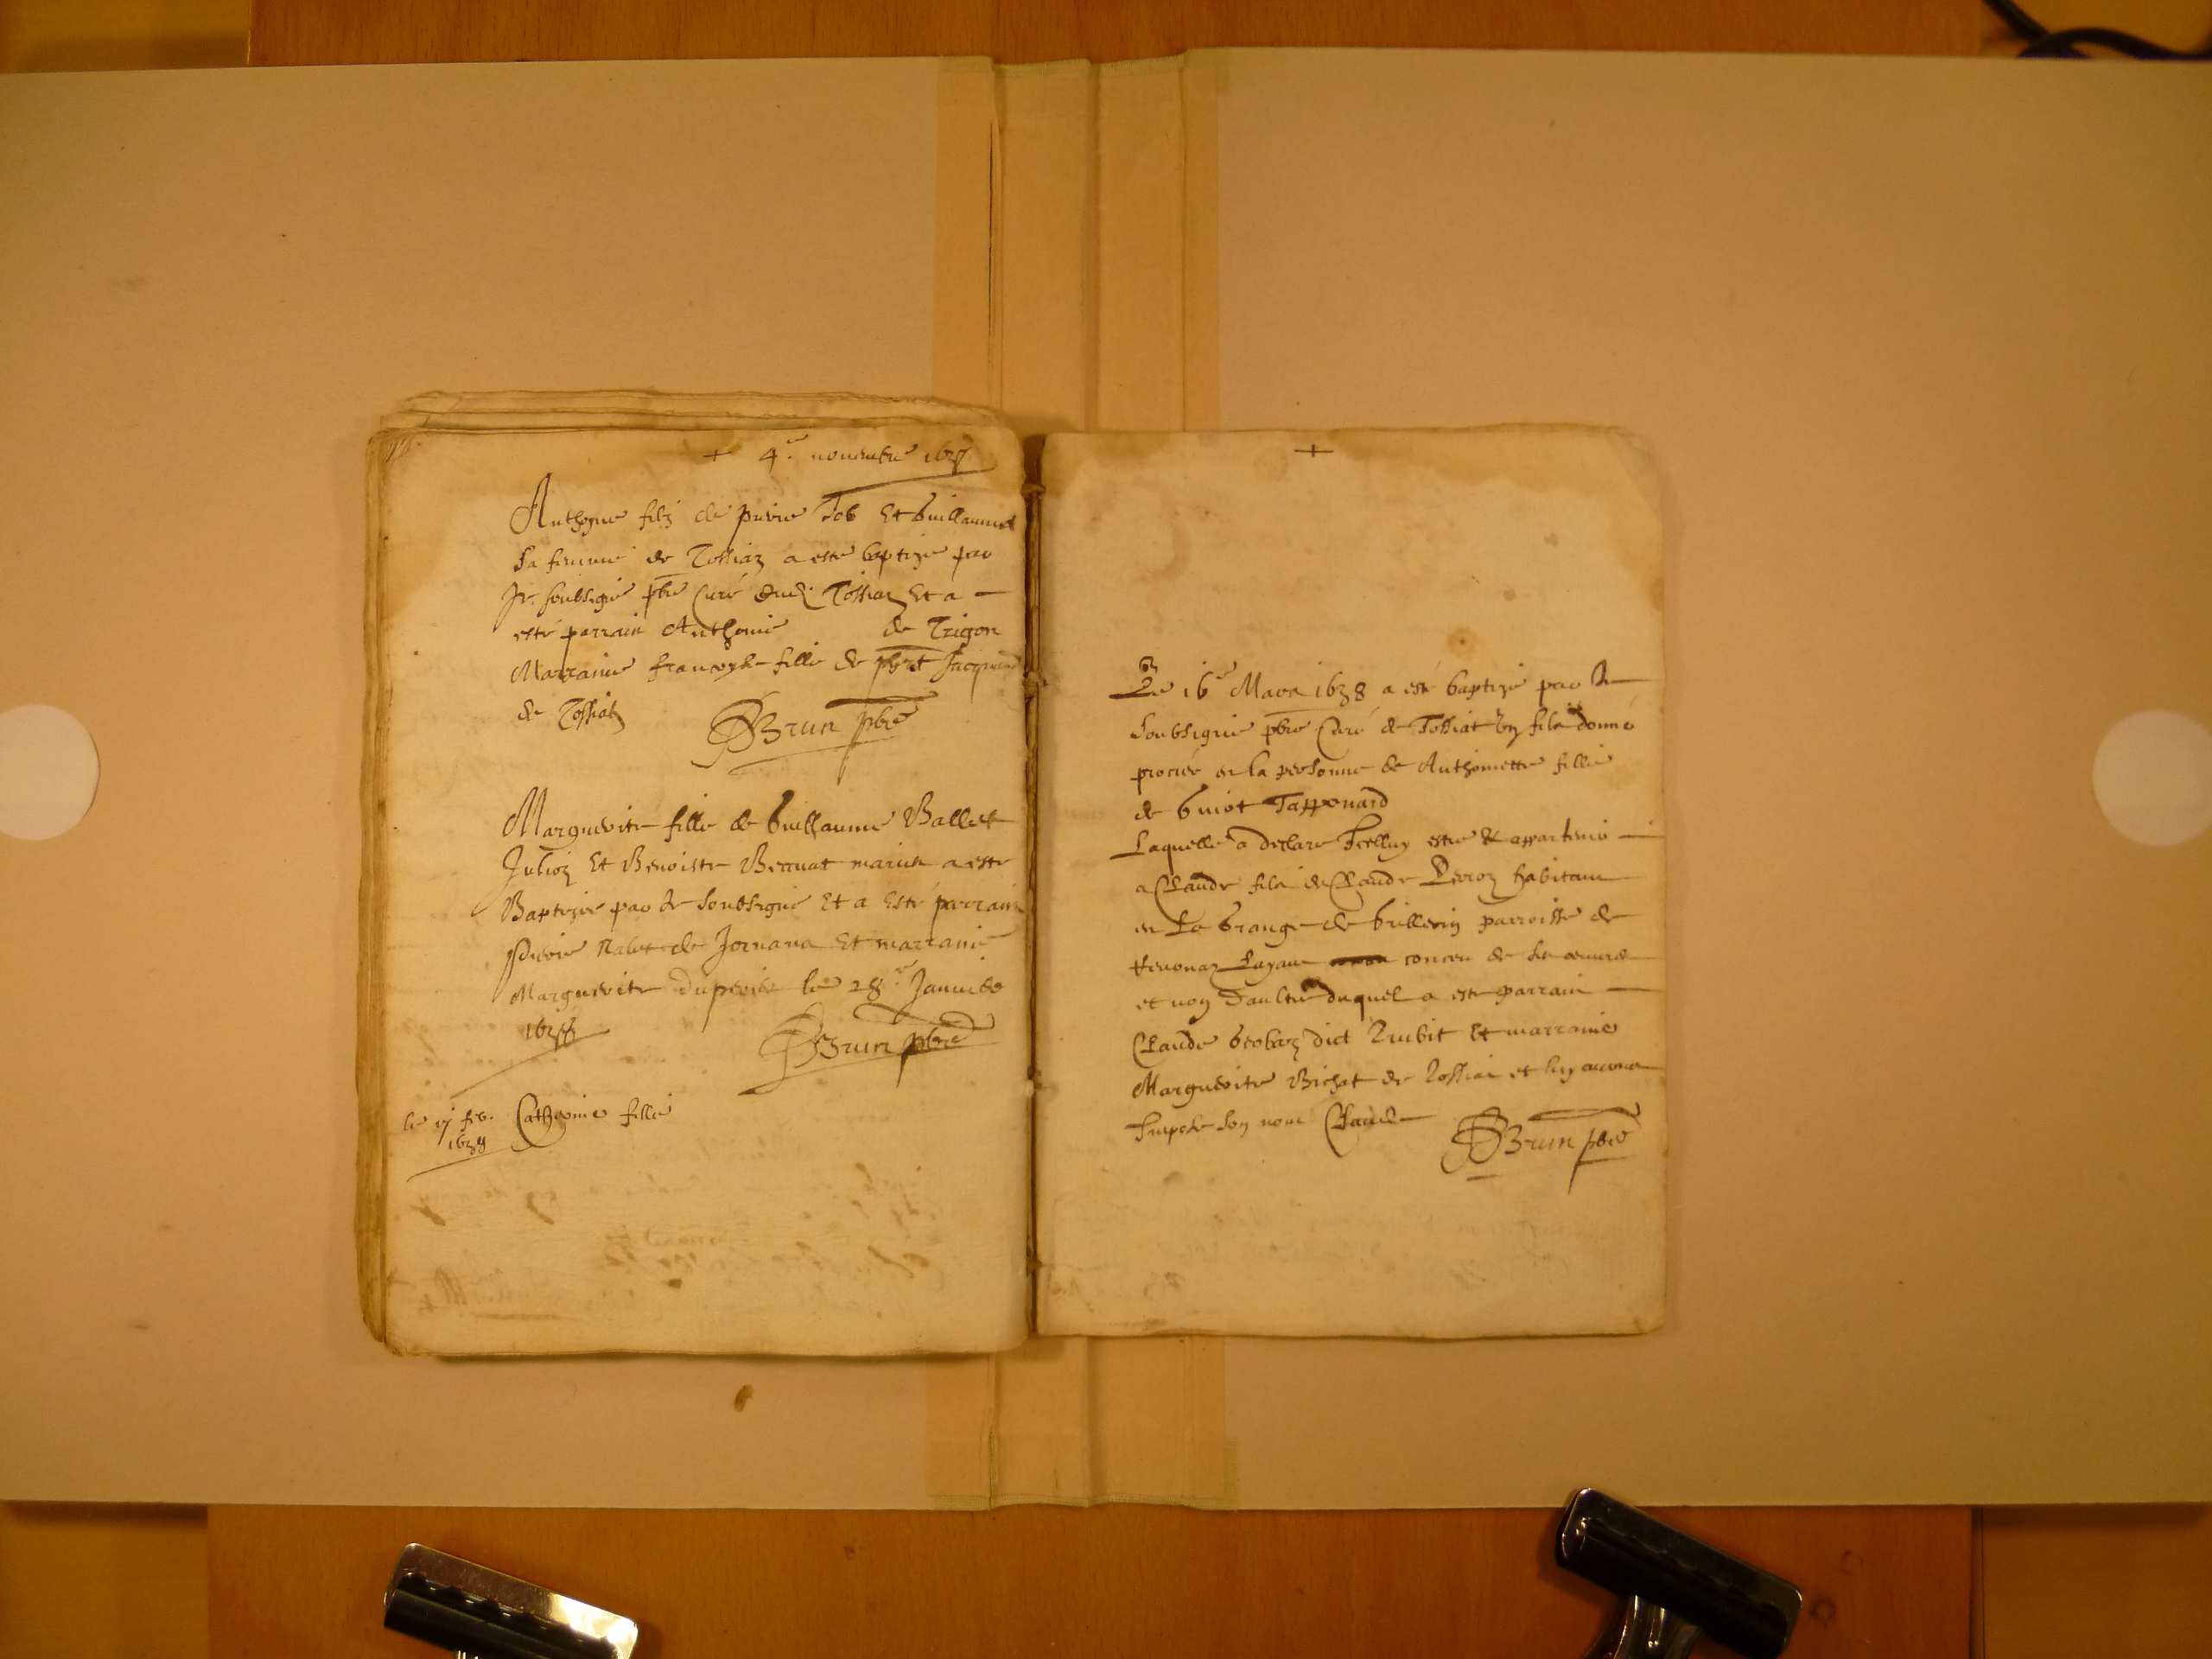 + 4.e novembre 1637
Anthoyne filz de pierre Job Et Guillauma
sa femme de Tossiaz a esté baptizé par
Je soubsigné pbre Curé dud. Tossiaz Et a
esté parrain Anthoine de Trigon
Marraine francoyse fille de
de Tossiaz DBrun pbre
Marguerite fille de Guillaume Ballet
Et Benoiste mariés a esté
Baptizée par Je soubsigné Et a Esté parrain
pierre de Jornana Et marraine
Marguerite Duperier le 28.e Janvier
1638 DBrun pbre
le fev. Catherine fille
1638
+
Le 16e Mars 1638 a esté baptizé par Je
soubsigné pbre Curé de Tossiat un fils donné
procréé en la personne de Anthoinette fille
de Guiot Tapponard
Laquelle a declaré Icelluy estre & appartenir
a Claude fils de Claude Perroz habitant
en La Grange de parroisse de
Layant conceu de ses oeuvres
et non Daultre duquel a esté parrain
Claude dict Et marraine
Marguerite Bichat de Tossiat et luy avons
Imposé son nom Claude DBrun pbre